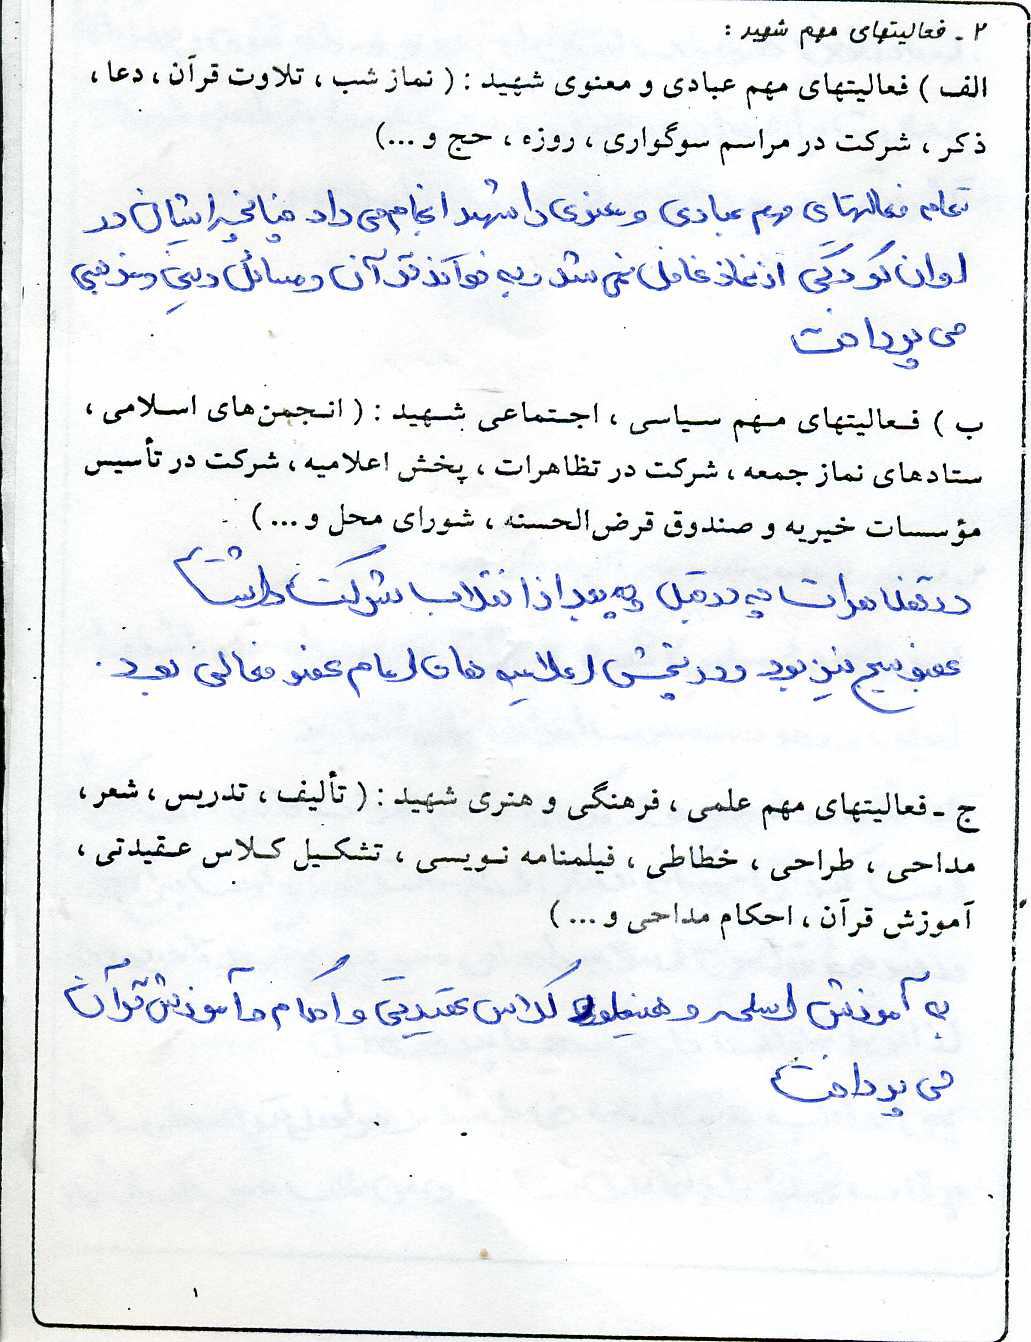 ۲ ـ فعالیتهای مهم شهید :
الف ) فعالیتهای مهم عبادی و معنوی شهید : ( نماز شب ، تلاوت قرآن ، دعا ،
ذکر ، شرکت در مراسم سوگواری ، روزه ، حج و ...)
تمام فعالیتهای مهم عبادی و معنوی را شهید انجام می داد چنانچه ایشان در
اوان کودکی از نماز غافل نمی شد و به خواندن قرآن و مسائل دینی و مذهبی
می پرداخت
ب ) فعالیتهای مهم سیاسی ، اجتماعی شهید : ( انجمن‌های اسلامی ،
ستادهای نماز جمعه ، شرکت در تظاهرات ، پخش اعلامیه ، شرکت در تأسیس
مؤسسات خیریه و صندوق قرض‌الحسنه ، شورای محل و ... )
در تظاهرات چه در قبل چه بعد از انقلاب شرکت داشت
عضو بسیج نیز بود و در پخش اعلامیه های امام عضو فعالی بود .
ج ـ فعالیتهای مهم علمی ، فرهنگی و هنری شهید : ( تألیف ، تدریس ، شعر ،
مداحی ، طراحی ، خطاطی ، فیلمنامه نویسی ، تشکیل کلاس عقیدتی ،
آموزش قرآن ، احکام مداحی و ... )
به آموزش اسلحه و همینطور کلاس عقیدتی و احکام و آموزش قرآن
می پرداخت
۱